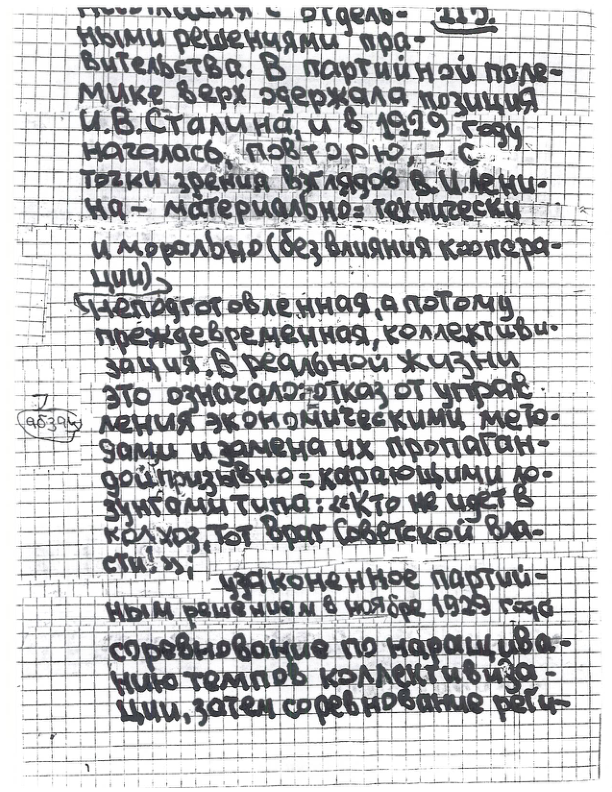 несогласия с отдель- 115.
ными решениями пра-
вительства. В партийной поле-
мике верх одержала позиция
И.В. Сталина, и в 1929 году
началась, повторю, – с
точки зрения взглядов В.И. Лени-
на – материально=технически
и морально (без влияния коопера-
ции)
неподготовленная, а потому
преждевременная, коллективи-
зация. В реальной жизни
это означало: отказ от управ
абзац ления экономическими мето-
дами и замена их пропаган-
дой призывно=карающими ло-
зунгами типа: «Кто не идет в
колхоз, тот враг Советской вла-
сти!»;
узаконенное партий-
ным решением в ноябре 1929 года
соревнование по наращива-
нию темпов коллективиза-
ции, затем соревнование реги-